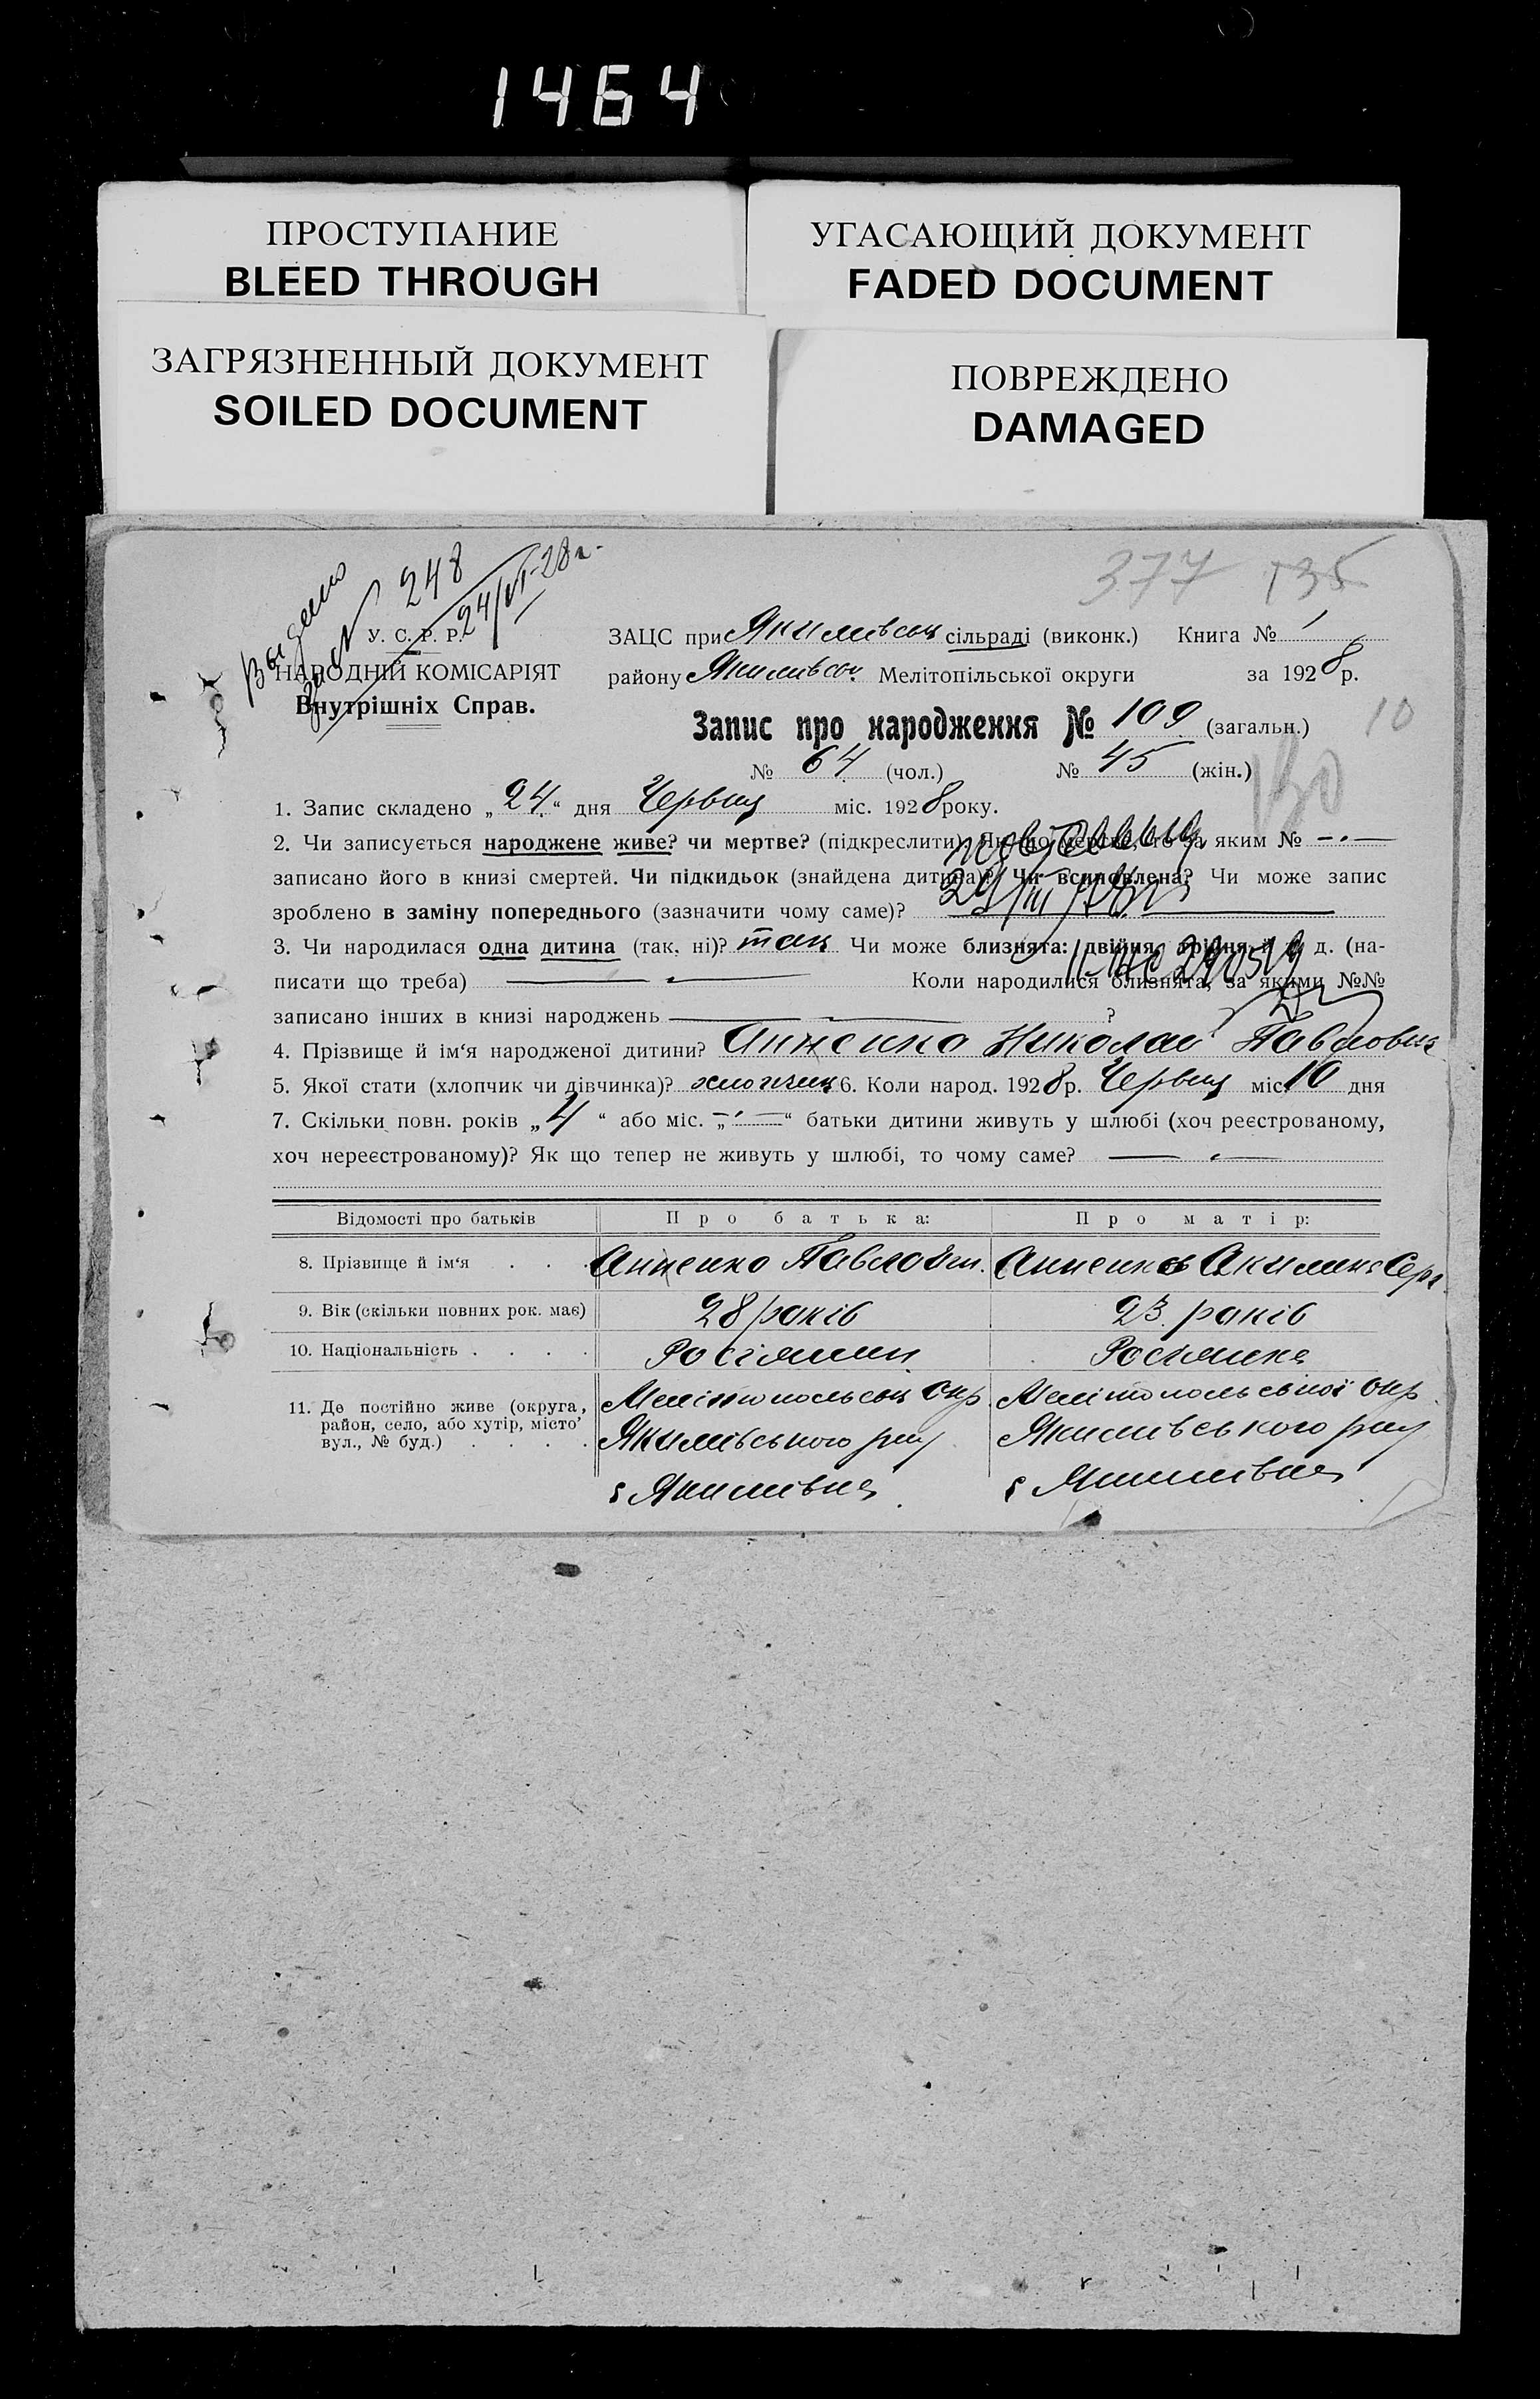 1464
ПРОСТУПАНИЕ
BLEED THROUGH
УГАСАЮЩИЙ ДОКУМЕНТ
FADED DOCUMENT
ЗАГРЯЗНЕННЫЙ ДОКУМЕНТ
SOILED DOCUMENT
ПОВРЕЖДЕНО
DAMAGED
377 135
Выдано
за № 248
24/VI-28г.
У. С. Р. Р.
НАРОДНІЙ КОМІСАРІЯТ
Внутрішніх Справ.
ЗАЦС при Якимівськ сільраді (виконк.) Книга № 1
району Якимівськ. Мелітопільської округи за 1928 р.
Запис про народження № 109 (загальн.)
10
№ 64 (чол.) № 45 (жін.)
130
1. Запис складено „24“ дня Червця міс. 1928 року.
2. Чи записується народжене живе? чи мертве? (підкреслити). Як що мертве, то за яким №
записано його в книзі смертей. Чи підкидьок (знайдена дитина)? Чи всиновлена? Чи може запис
зроблено в заміну попереднього (зазначити чому саме)?
3. Чи народилася одна дитина (так, ні)? так Чи може близнята: двійня, трійня й т. д. (на-
писати що треба) Коли народилися близнята, за якими №№
записано інших в книзі народжень ?
4. Прізвище й ім‘я народженої дитини? Анненко Николай Павлович
5. Якої стати (хлопчик чи дівчинка)? хлопчик 6. Коли народ. 1928 р. Червця міс. 10 дня
7. Скільки повн. років „4“ або міс. „—“ батьки дитини живуть у шлюбі (хоч реєстрованому,
хоч нереєстрованому)? Як що тепер не живуть у шлюбі, то чому саме?
Відомості про батьків Про батька: Про матір:
8. Прізвище й ім‘я . . . Анненко Павло Анненко Акилина Серг
9. Вік (скільки повних рок. має) 28 років 23 років
10. Національність . . . . Росіянин Росіянка
11. Де постійно живе (округа,
район, село, або хутір, місто
вул., № буд.) . . . .
Мелітопольськ Окр. Мелітопольської Окр
Якимівського рну Якимівського рну
с Якимівка с Якимівка